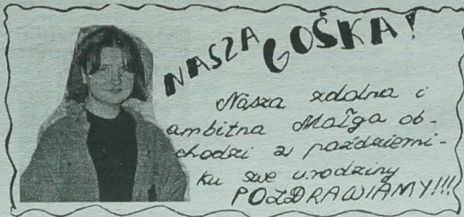 NASZA GOŚKA!
Nasza zdolna i
ambitna Małga ob-
chodzi w październi-
ku swe urodziny
POZDRAWIAMY!!!